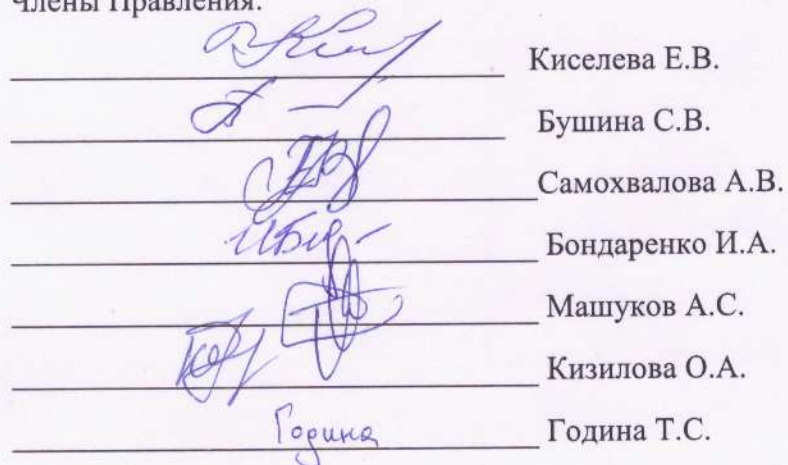 Члены Правления:
Киселева Е.В.
Бушина С.В.
Самохвалова А.В.
Бондаренко И.А.
Машуков А.С.
Кизилова О.А.
Година Година Т.С.